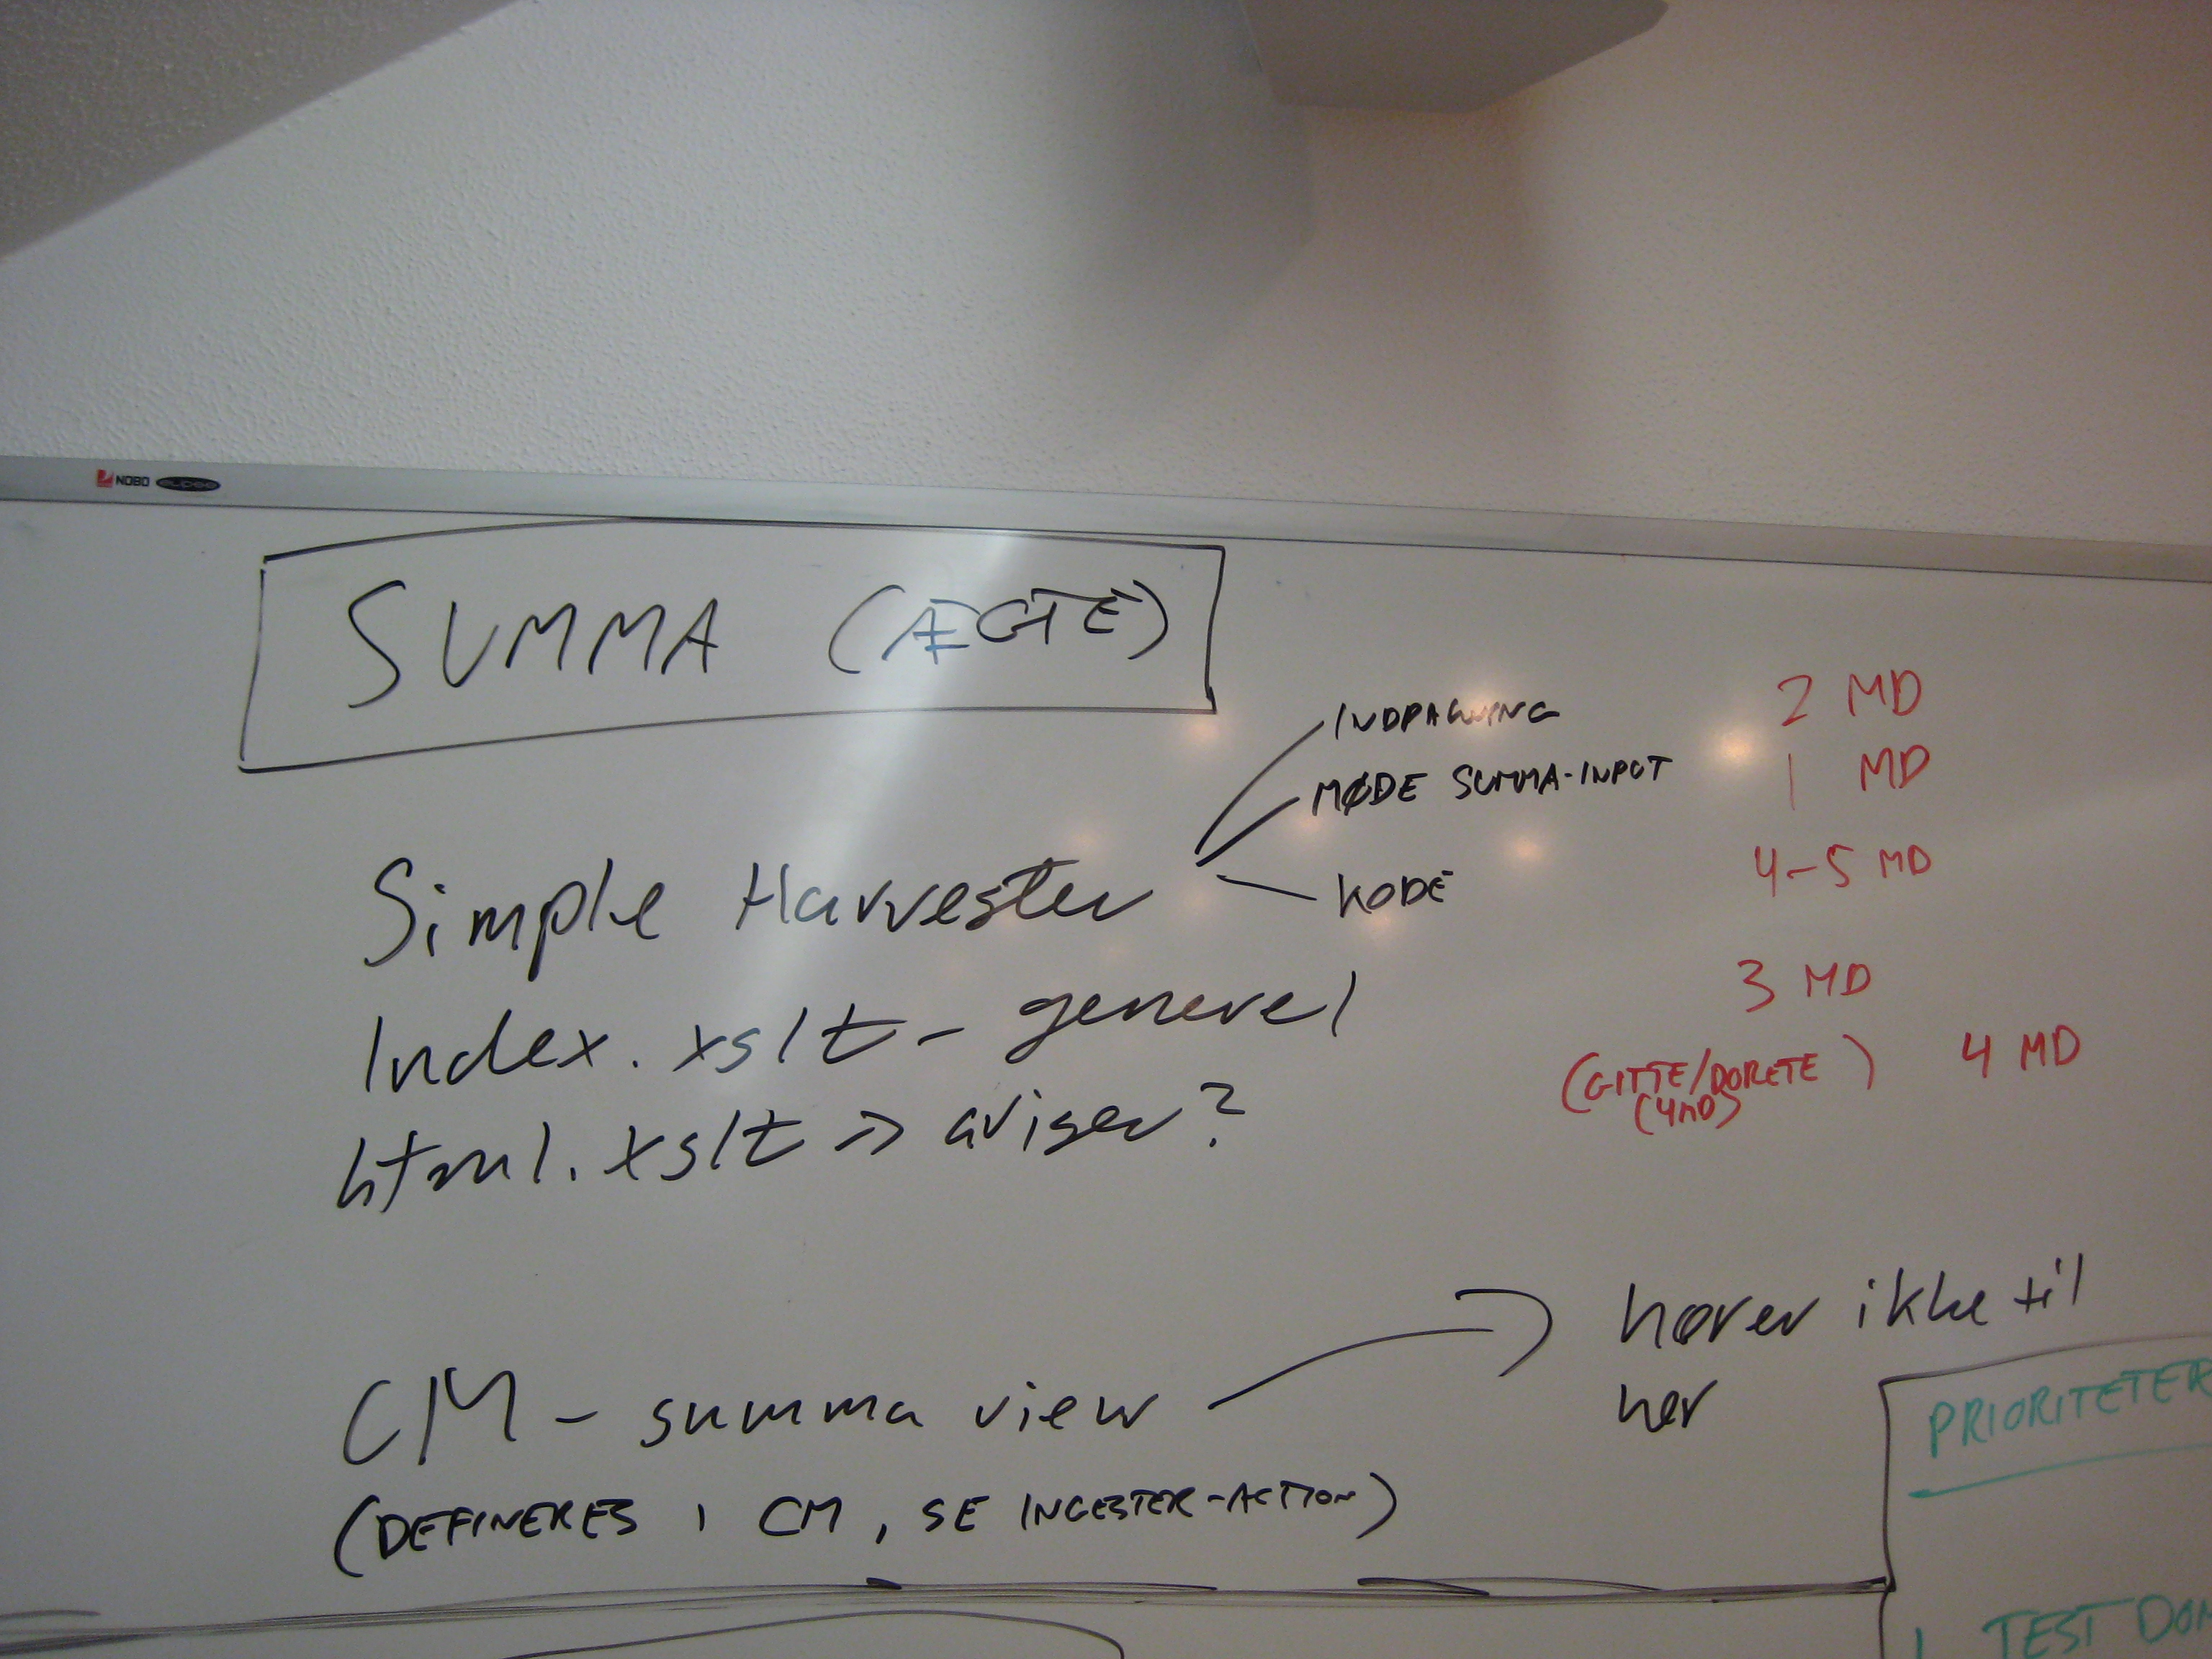 NOBO
SUMMA (ÆGTE)
INDPAKNING 2 MD
MØDE SUMMA-INPUT 1 MD
Simple Harvester
KODE 4-5 MD
Index.xslt - generel 3 MD
html.xslt => aviser? (GITTE/DORETE) 4 MD
(4MD)
CM - summa view hører ikke til
her
(DEFINERES I CM, SE INGESTER-ACTION)
PRIORITETER
1 TEST DOM